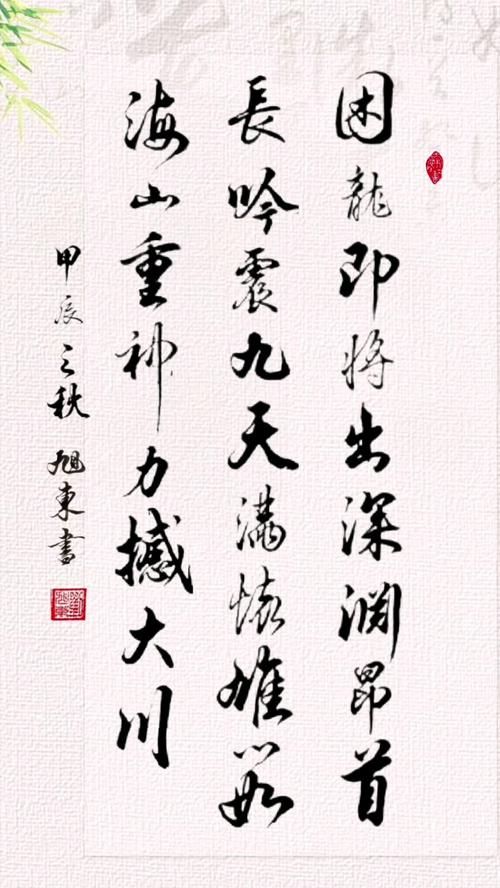 困龍即将出深渊昂首
長吟震九天滿懷雄心如
海山重神力撼大川
甲辰之秋 旭東書